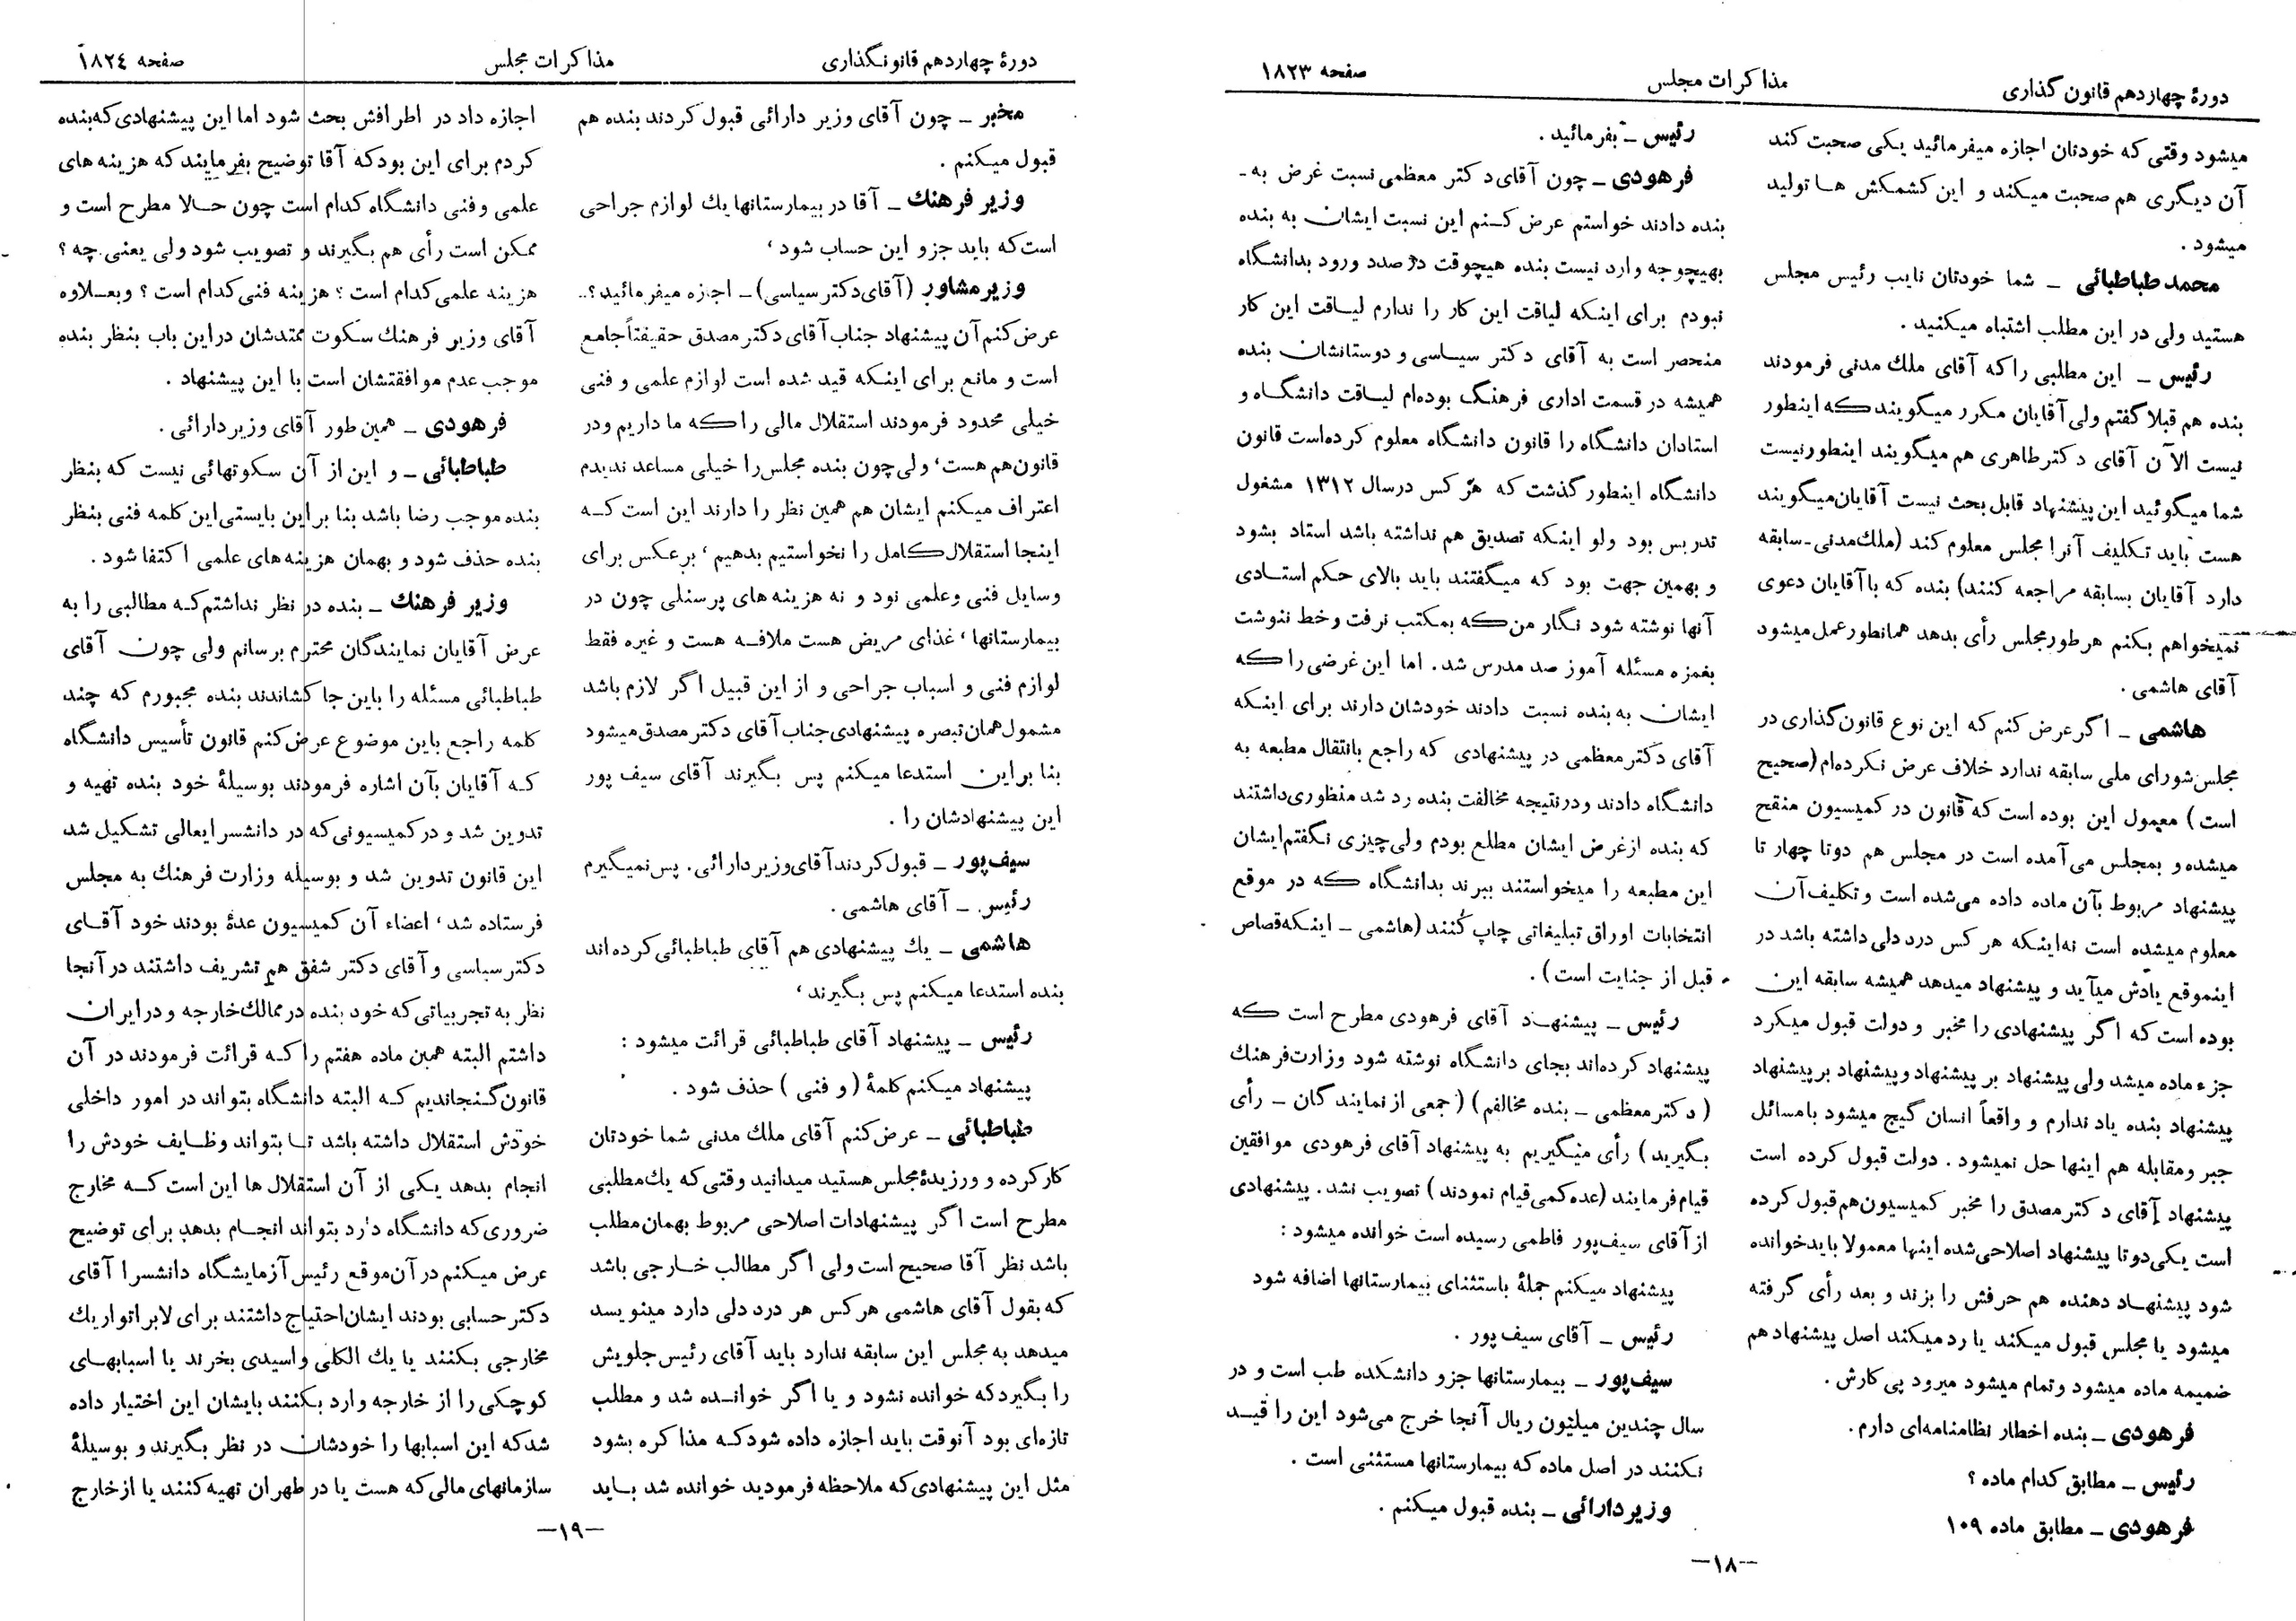 دورهٔ چهاردهم قانون گذاری
مذاکرات مجلس
صفحه ۱۸۲۳
میشود وقتی که خودتان اجازه میفرمائید یکی صحبت کند
آن دیگری هم صحبت میکند و این کشمکش هـا تولید
میشود .
محمد طباطبائی ـ شما خودتان نایب رئیس مجلس
هستید ولی در این مطلب اشتباه میکنید .
رئیس ـ این مطلبی را که آقای ملك مدنی فرمودند
بنده هم قبلا گفتم ولی آقایان مکرر میگویند که اینطور
نیست الآن آقای دکتر طاهری هم میگویند اینطور نیست
شما میگوئید این پیشنهاد قابل بحث نیست آقایان میگویند
هست باید تکلیف آنرا مجلس معلوم کند (ملك مدنی ـ سابقه
دارد آقایان بسابقه مراجعه کنند) بنده که با آقایان دعوی
نمیخواهم بکنم هرطور مجلس رأی بدهد همانطور عمل میشود
آقای هاشمی .
هاشمی ـ اگر عرض کنم که این نوع قانون گذاری در
مجلس شورای ملی سابقه ندارد خلاف عرض نکرده‌ام (صحیح
است) معمول این بوده است که قانون در کمیسیون منقح
میشده و بمجلس می‌آمده است در مجلس هم دوتا چهار تا
پیشنهاد مربوط بآن ماده داده می‌شده است و تکلیف آن
معلوم میشده است نه اینکه هر کس درد دلی داشته باشد در
اینموقع یادش میآید و پیشنهاد میدهد همیشه سابقه این
بوده است که اگر پیشنهادی را مخبر و دولت قبول میکرد
جزء ماده میشد ولی پیشنهاد بر پیشنهاد و پیشنهاد بر پیشنهاد
پیشنهاد بنده یاد ندارم و واقعاً انسان گیج میشود با مسائل
جبر و مقابله هم اینها حل نمیشود . دولت قبول کرده است
پیشنهاد آقای دکتر مصدق را مخبر کمیسیون هم قبول کرده
است یکی دوتا پیشنهاد اصلاحی شده اینها معمولا باید خوانده
شود پیشنهـاد دهنده هم حرفش را بزند و بعد رأی گرفته
میشود یا مجلس قبول میکند یا رد میکند اصل پیشنهاد هم
ضمیمه ماده میشود و تمام میشود میرود پی کارش .
فرهودی ـ بنده اخطار نظامنامه‌ای دارم .
رئیس ـ مطابق کدام ماده ؟
فرهودی ـ مطابق ماده ۱۰۹
رئیس ـ بفرمائید .
فرهودی ـ چون آقای دکتر معظمی نسبت غرض به ـ
بنده دادند خواستم عرض کـنم این نسبت ایشان به بنده
بهیچوجه وارد نیست بنده هیچوقت در صدد ورود بدانشگاه
نبودم برای اینکه لیاقت این کار را ندارم لیـاقت این کار
منحصر است به آقای دکتر سیـاسی و دوستانشان بنده
همیشه در قسمت اداری فرهنگ بوده‌ام لیـاقت دانشگـاه و
استادان دانشگاه را قانون دانشگاه معلوم کرده‌است قانون
دانشگاه اینطور گذشت که هر کس در سال ۱۳۱۲ مشغول
تدریس بود ولو اینکه تصدیق هم نداشته باشد استاد بشود
و بهمین جهت بود که میگفتند باید بالای حکم استـادی
آنها نوشته شود نگار من که بمکتب نرفت و خط ننوشت
بغمزه مسئله آموز صد مدرس شد . اما این غرضی را که
ایشان به بنده نسبت دادند خودشان دارند برای اینکه
آقای دکتر معظمی در پیشنهادی که راجع بانتقال مطبعه به
دانشگاه دادند و درنتیجه مخالفت بنده رد شد منظوری داشتند
که بنده ازغرض ایشان مطلع بودم ولی چیزی نگفتم ایشان
این مطبعه را میخواستند ببرند بدانشگاه که در موقع
انتخابات اوراق تبلیغاتی چاپ کنند (هاشمی ـ اینکه قصاص
قبل از جنایت است) .
رئیس ـ پیشنهـاد آقای فرهودی مطرح است که
پیشنهاد کرده‌اند بجای دانشگاه نوشته شود وزارت فرهنك
(دکتر معظمی ـ بنده مخالفم) (جمعی از نمایندگان ـ رأی
بگیرید) رأی میگیریم به پیشنهاد آقای فرهودی موافقین
قیام فرمایند (عده کمی قیام نمودند) تصویب نشد . پیشنهادی
از آقای سیف‌پور فاطمی رسیده است خوانده میشود :
پیشنهاد میکنم جملهٔ باستثنای بیمارستانها اضافه شود
رئیس ـ آقای سیف پور .
سیف‌پور ـ بیمارستانها جزو دانشکده طب است و در
سال چندین میلیون ریال آنجا خرج می‌شود این را قیـد
نکنند در اصل ماده که بیمارستانها مستثنی است .
وزیر دارائی ـ بنده قبول میکنم .
ـ۱۸ـ
دورهٔ چهاردهم قانونگذاری
مذاکرات مجلس
صفحه ۱۸۲٤
مخبر ـ چون آقای وزیر دارائی قبول کردند بنده هم
قبول میکنم .
وزیر فرهنك ـ آقا در بیمارستانها یك لوازم جراحی
است که باید جزو این حساب شود ،
وزیر مشاور (آقای دکتر سیاسی) ـ اجازه میفرمائید ؟..
عرض کنم آن پیشنهاد جناب آقای دکتر مصدق حقیقتاً جامع
است و مانع برای اینـکه قید شده است لوازم علمی و فنی
خیلی محدود فرمودند استقلال مالی را که ما داریم و در
قانون هم هست، ولی چون بنده مجلس را خیلی مساعد ندیدم
اعتراف میکنم ایشان هم همین نظر را دارند این است کـه
اینجا استقلال کامل را نخواستیم بدهیم ، برعکس برای
وسایل فنی وعلمی نود و نه هزینه های پرسنلی چون در
بیمارستانها ، غذای مریض هست ملافـه هست و غیره فقط
لوازم فنی و اسباب جراحی و از این قبیل اگر لازم باشد
مشمول همان تبصره پیشنهادی جناب آقای دکتر مصدق میشود
بنا براین استدعا میکنم پس بگیرند آقای سیف پور
این پیشنهادشان را .
سیف‌پور ـ قبول کردند آقای وزیر دارائی . پس نمیگیرم
رئیس ـ آقای هاشمی .
هاشمی ـ یك پیشنهادی هم آقای طباطبائی کرده‌اند
بنده استدعا میکنم پس بگیرند ،
رئیس ـ پیشنهاد آقای طباطبائی قرائت میشود :
پیشنهاد میکنم کلمهٔ (و فنی) حذف شود .
طباطبائی ـ عرض کنم آقای ملك مدنی شما خودتان
کارکرده و ورزیدهٔ مجلس هستید میدانید وقتی که یك مطلبی
مطرح است اگر پیشنهادات اصلاحی مربوط بهمان مطلب
باشد نظر آقا صحیح است ولی اگر مطالب خـارجی باشد
که بقول آقای هاشمی هرکس هر درد دلی دارد مینویسد
میدهد به مجلس این سابقه ندارد باید آقای رئیس جلویش
را بگیرد که خوانده نشود و یا اگر خوانـده شد و مطلب
تازه‌ای بود آنوقت باید اجازه داده شود کـه مذاکره بشود
مثل این پیشنهادی که ملاحظه فرمودید خوانده شد بـاید
اجازه داد در اطرافش بحث شود اما این پیشنهادی که بنده
کردم برای این بود که آقا توضیح بفرمایند که هزینه های
علمی و فنی دانشگاه کدام است چون حـالا مطرح است و
ممکن است رأی هم بگیرند و تصویب شود ولی یعنی چه ؟
هزینه علمی کدام است ؟ هزینه فنی کدام است ؟ و بعـلاوه
آقای وزیر فرهنك سکوت ممتدشان در این باب بنظر بنده
موجب عدم موافقتشان است با این پیشنهاد .
فرهودی ـ همین طور آقای وزیر دارائی .
طباطبائی ـ و این از آن سکوتهائی نیست که بنظر
بنده موجب رضا باشد بنا براین بایستی این کلمه فنی بنظر
بنده حذف شود و بهمان هزینه های علمی اکتفا شود .
وزیر فرهنك ـ بنده در نظر نداشتم کـه مطالبی را به
عرض آقایان نمایندگان محترم برسانم ولی چون آقای
طباطبائی مسئله را باین جا کشاندند بنده مجبورم که چند
کلمه راجع باین موضوع عرض کنم قانون تأسیس دانشگاه
کـه آقایان بآن اشاره فرمودند بوسیلهٔ خود بنده تهیه و
تدوین شد و در کمیسیونی که در دانشسرایعالی تشکیل شد
این قانون تدوین شد و بوسیله وزارت فرهنك به مجلس
فرستاده شد ، اعضاء آن کمیسیون عدهٔ بودند خود آقـای
دکتر سیاسی و آقای دکتر شفق هم تشریف داشتند در آنجا
نظر به تجربیاتی که خود بنده در ممالك خارجه و در ایران
داشتم البته همین ماده هفتم را کـه قرائت فرمودند در آن
قانون گنجاندیم کـه البته دانشگاه بتواند در امور داخلی
خودش استقلال داشته باشد تـا بتواند وظـایف خودش را
انجام بدهد یکی از آن استقلال ها این است کـه مخارج
ضروری که دانشگاه دارد بتواند انجـام بدهد برای توضیح
عرض میکنم در آن موقع رئیس آزمایشگاه دانشسرا آقای
دکتر حسابی بودند ایشان احتیاج داشتند برای لابراتوار یك
مخارجی بکنند یا یك الکلی و اسیدی بخرند یا اسبابهـای
کوچکی را از خارجه وارد بکنند بایشان این اختیار داده
شد که این اسبابها را خودشان در نظر بگیرند و بوسیلهٔ
سازمانهای مالی که هست یا در طهران تهیه کنند یا از خارج
ـ۱۹ـ